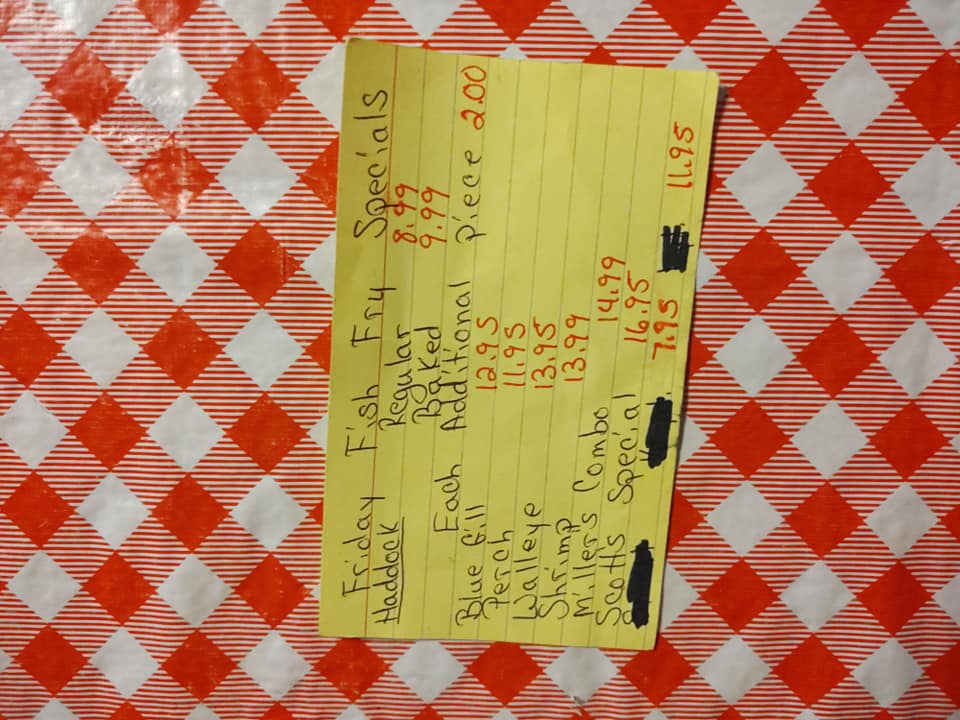 Friday Fish Fry Specials
Haddock Regular 8.99
Baked 9.99
Each Additional piece 2.00
Blue Gill 12.95
Perch 11.95
Walleye 13.95
Shrimp 13.99
Millers Combo 14.99
Scotts Special 16.95
7.95 11.95